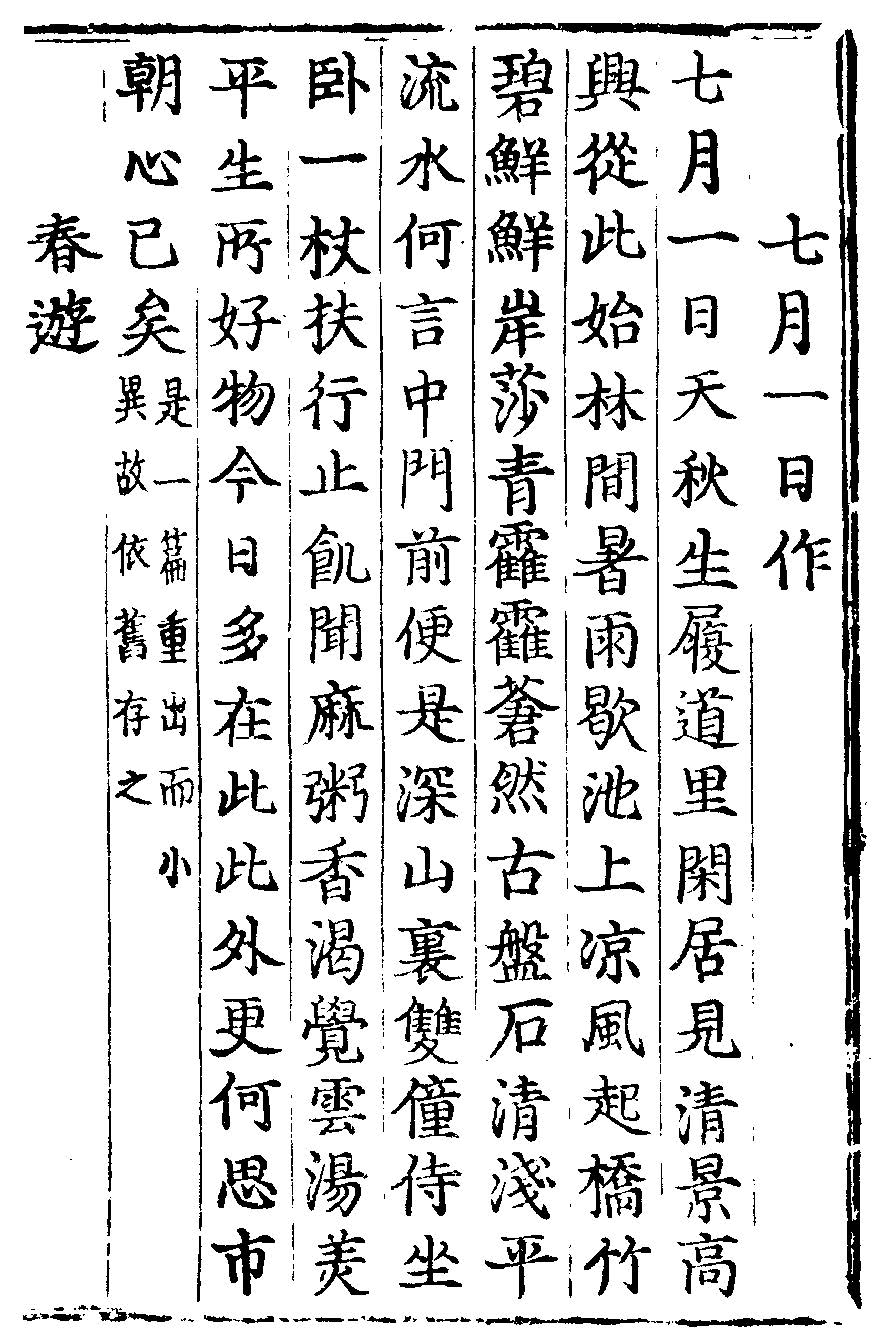 七月一日作
七月一日天秋生履道里閑居見清景高
興從此始林間暑雨歇池上凉風起橋竹
碧鮮鮮岸莎青靃靃蒼然古盤石清淺平
流水何言中門前便是深山裏雙僮侍坐
卧一杖扶行止飢聞麻粥香渴覺雲湯美
平生所好物今日多在此此外更何思市
朝心已矣是一篇重出而小
異故依舊存之
春遊